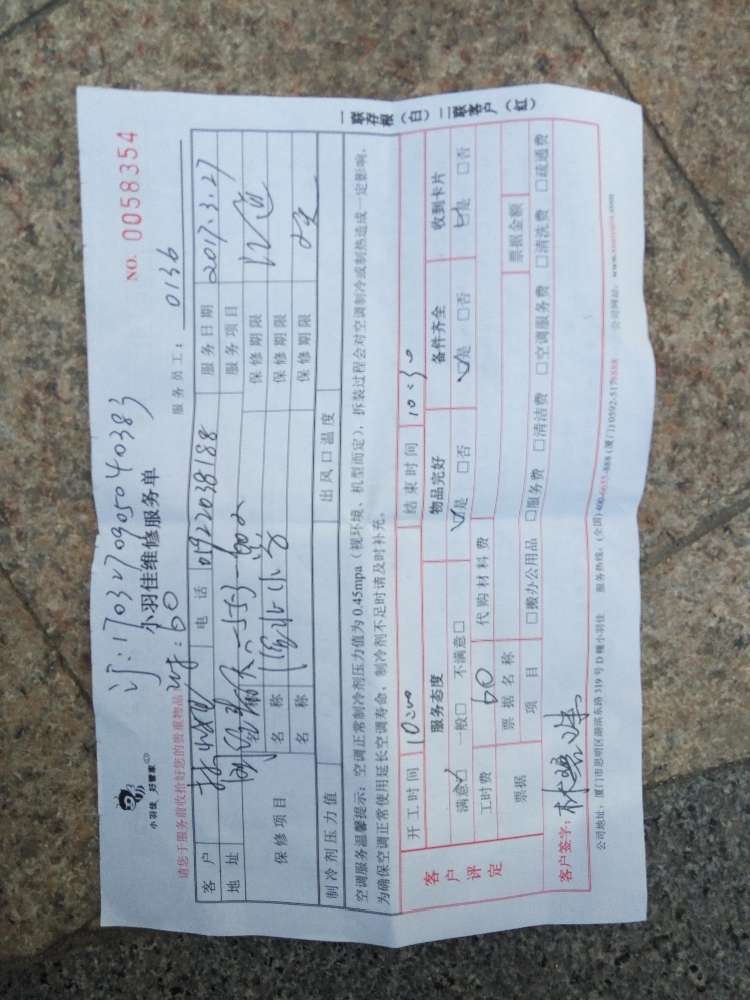 订:170327090504038​3
NO. 0058354
小羽佳 好管家
小羽佳维修服务单
服务员工: 0136
请您于服务前收拾好您的贵重物品
wf:60
客户 电话 服务日期 2017.3.27
地址 服务项目
保修项目 名称 保修期限
名称 保修期限
保修期限
制冷剂压力值 出风口温度
空调服务温馨提示:空调正常制冷剂压力值为0.45mpa(视环境、机型而定),拆装过程会对空调制冷或制热造成一定影响,
为确保空调正常使用延长空调寿命,制冷剂不足时请及时补充。
开工时间 10:00 结束时间 10:30
客户评定 服务态度 物品完好 备件齐全 收到卡片
满意☑ 一般□ 不满意□ ☑是 □否 ☑是 □否 ☑是 □否
工时费 60 代购材料费
票据 票据名称 票据金额
项目 □搬办公用品 □服务费 □清洁费 □空调服务费 □清洗费 □疏通费
客户签字:
公司地址:厦门市思明区湖滨东路319号D幢小羽佳 服务热线:(全国)
一联存根(白) 二联客户(红)